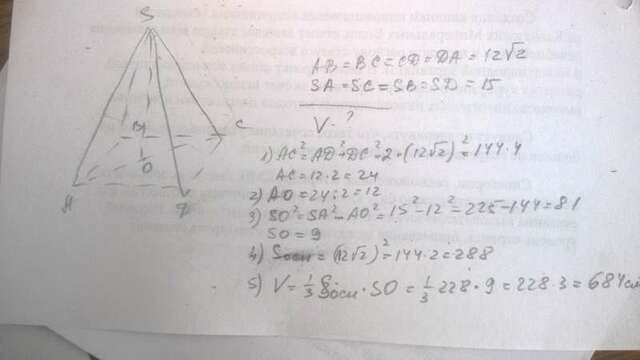 S
B
C
O
A
D
AB=BC=CD=DA=12√2
SA=SC=SB=SD=15
V-?
1) AC²=AD²+DC²=2·(12√2)²=144·4
AC=12·2=24
2) AO=24:2=12
3) SO²=SA²-AO²=15²-12²=225-144=81
SO=9
4) Sосн=(12√2)²=144·2=288
5) V=1/3 Sосн·SO=1/3 228·9=228·3=684см